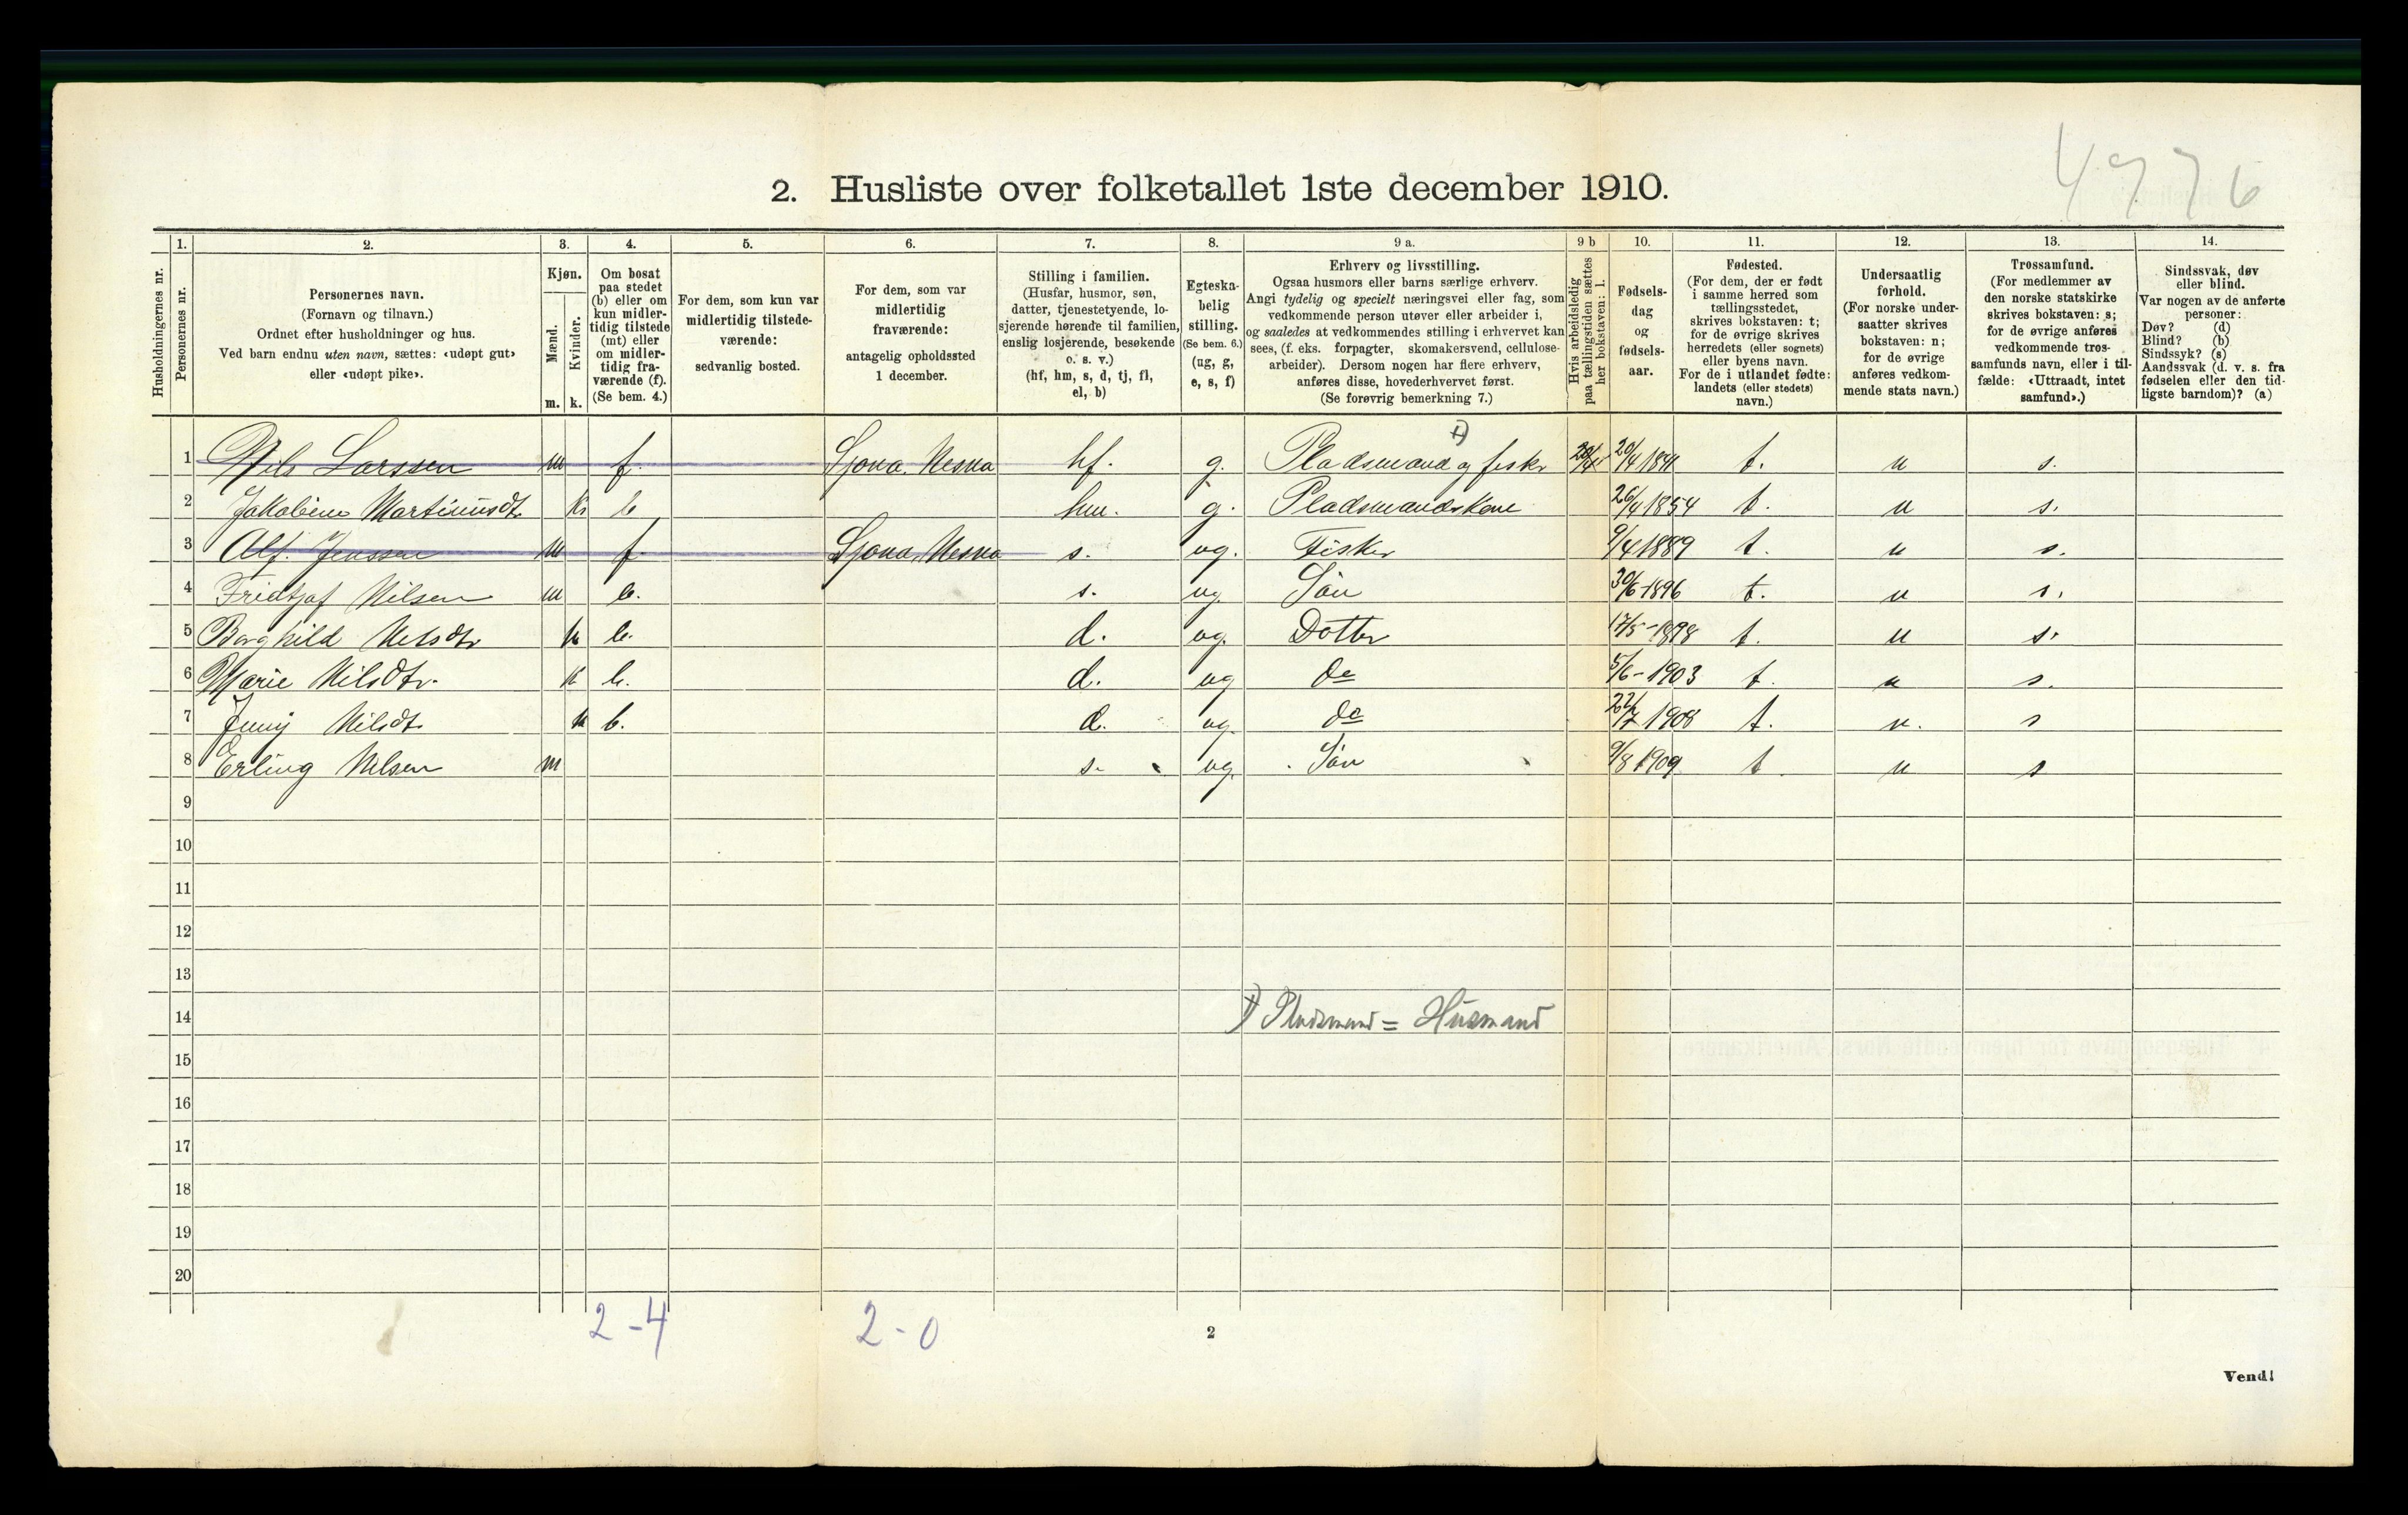 4776
2. Husliste over folketallet 1ste december 1910.
Husholdningernes nr.
1. Personernes nr.
2. Personernes navn.
(Fornavn og tilnavn.)
Ordnet efter husholdninger og hus.
Ved barn endnu uten navn, sættes: «udøpt gut»
eller «udøpt pike».
3. Kjøn.
Mænd. Kvinder.
m. k.
4. Om bosat
paa stedet
(b) eller om
kun midler-
tidig tilstede
(mt) eller
om midler-
tidig fra-
værende (f).
(Se bem. 4.)
5. For dem, som kun var
midlertidig tilstede-
værende:
sedvanlig bosted.
6. For dem, som var
midlertidig
fraværende:
antagelig opholdssted
1 december.
7. Stilling i familien.
(Husfar, husmor, søn,
datter, tjenestetyende, lo-
sjerende hørende til familien,
enslig losjerende, besøkende
o. s. v.)
(hf, hm, s, d, tj, fl,
el, b)
8. Egteska-
belig
stilling.
(Se bem. 6.)
(ug, g,
e, s, f)
9 a. Erhverv og livsstilling.
Ogsaa husmors eller barns særlige erhverv.
Angi tydelig og specielt næringsvei eller fag, som
vedkommende person utøver eller arbeider i,
og saaledes at vedkommendes stilling i erhvervet kan
sees, (f. eks. forpagter, skomakersvend, cellulose-
arbeider). Dersom nogen har flere erhverv,
anføres disse, hovederhvervet først.
(Se forøvrig bemerkning 7.)
9 b Hvis arbeidsledig
paa tællingstiden sættes
her bokstaven: l.
10. Fødsels-
dag
og
fødsels-
aar.
11. Fødested.
(For dem, der er født
i samme herred som
tællingsstedet,
skrives bokstaven: t;
for de øvrige skrives
herredets (eller sognets)
eller byens navn.
For de i utlandet fødte:
landets (eller stedets)
navn.)
12. Undersaatlig
forhold.
(For norske under-
saatter skrives
bokstaven: n;
for de øvrige
anføres vedkom-
mende stats navn.)
13. Trossamfund.
(For medlemmer av
den norske statskirke
skrives bokstaven: s;
for de øvrige anføres
vedkommende tros-
samfunds navn, eller i til-
fælde: «Uttraadt, intet
samfund».)
14. Sindssvak, døv
eller blind.
Var nogen av de anførte
personer:
Døv? (d)
Blind? (b)
Sindssyk? (s)
Aandssvak (d. v. s. fra
fødselen eller den tid-
ligste barndom)? (a)
1 Nils Larssen m f. Sjona, Nesna hf. g. Pladsmand og fisker 1) 20/4 20/4 1841 t. n s.
2 Jakobine Martinusdt. k b hm. g. Pladsmandskone 26/4 1854 t. n s.
3 Alf. Jenssen m f Sjona, Nesna s. ug. Fisker 9/4 1889 t. n s.
4 Fridtjof Nilsen m b. s. ug Søn 30/6-1896 t. n s.
5 Borghild Nilsdtr k b. d. ug. Dotter 17/5-1898 t. n s.
6 Marie Nilsdtr. k b. d. ug do 5/6-1903 t. n s.
7 Jenny Nilsdt. k b. d. ug. do 22/7 1908 t. n. s
8 Erling Nilsen m s. ug. Søn 9/8 1909 t. n s
9
10
11
12
13
14 1) Pladsmand = Husmand
15
16
17
18
19
20
2-4 2-0
2
Vend!